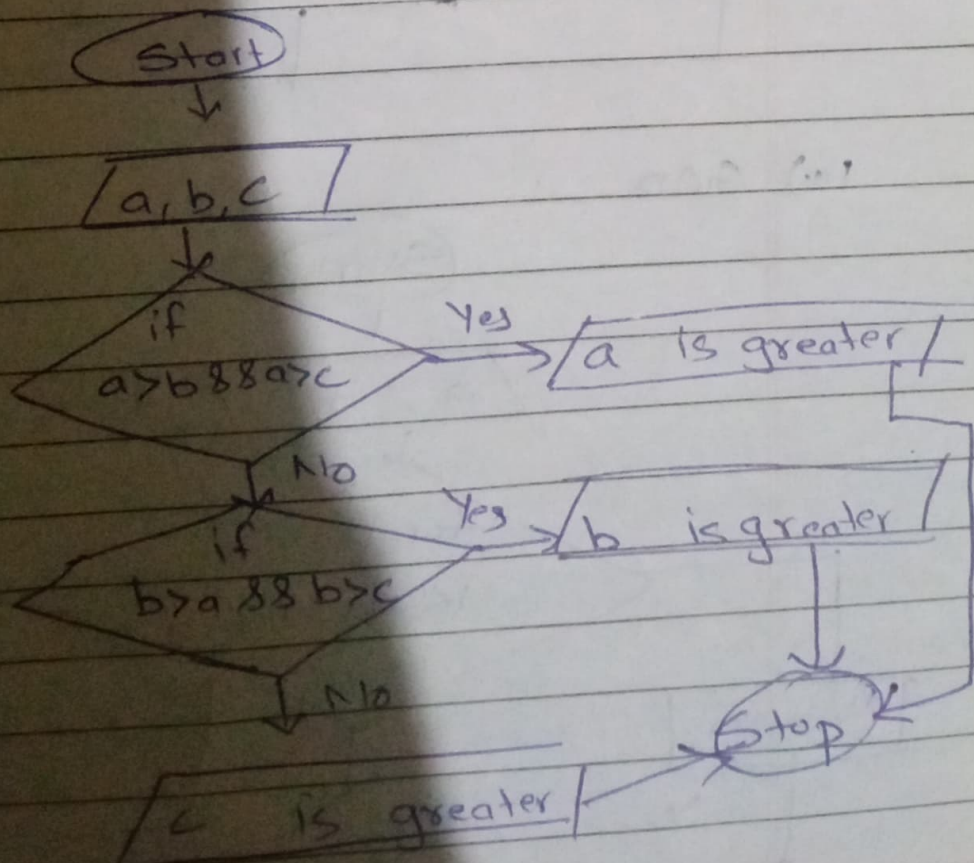 Start
a, b, c
if
a>b && a>c
Yes
a is greater
No
if
b>a && b>c
Yes
b is greater
No
Stop
c is greater